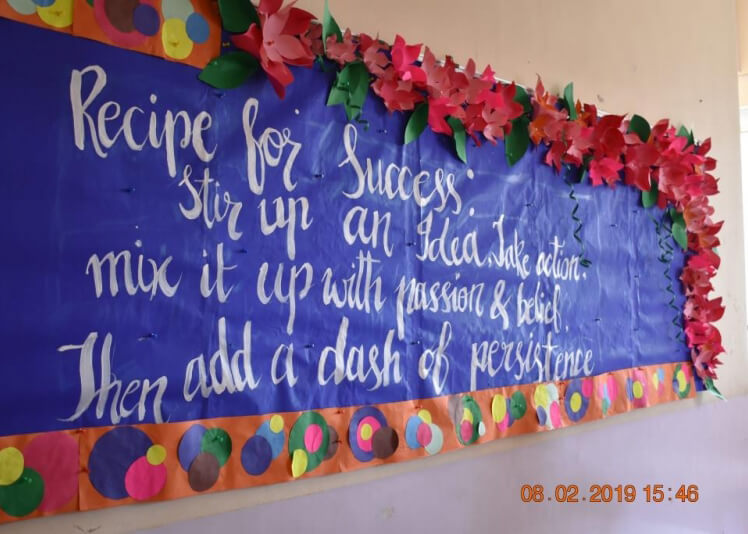 Recipe for Success:
Stir up an Idea. Take action.
mix it up with passion & belief.
Then add a dash of persistence
08.02.2019 15:46